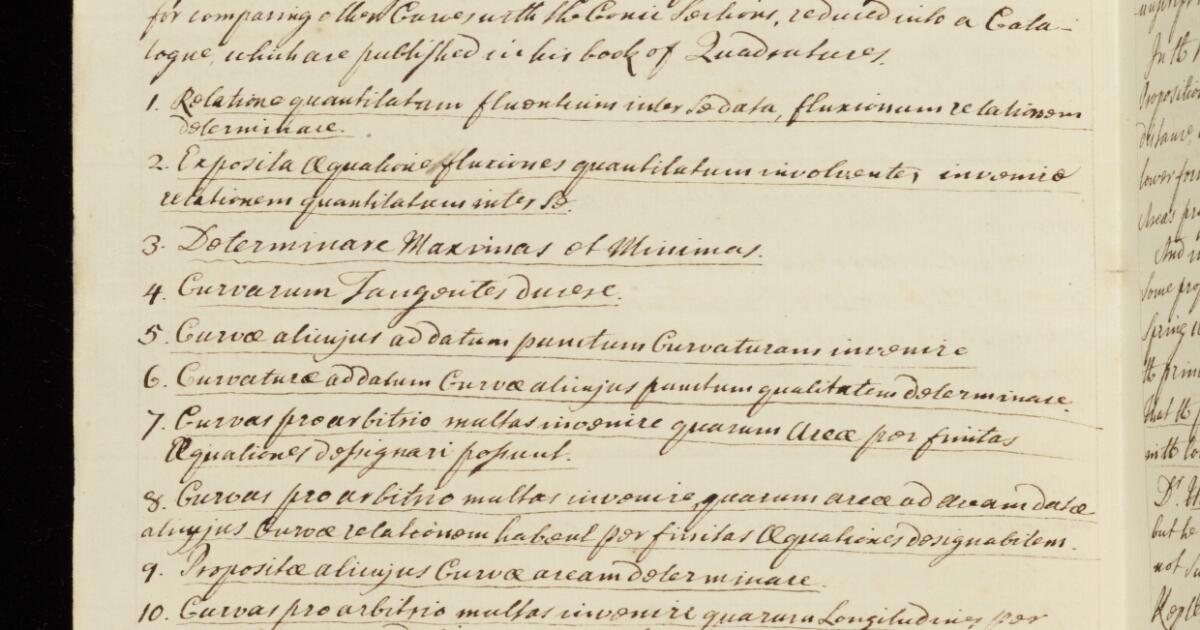 for comparing other Curves with the Conic Sections, reduced into a Cata-
logue, which are published in his book of Quadratures.
1. Relatione quantitatum fluentium inter Se data, fluxionum relationem
determinare.
2. Exposita Æquatione fluxiones quantitatum involvente, invenire
relationem quantitatum inter Se.
3. Determinare Maximas et Minimas.
4. Curvarum Tangentes ducere.
5. Curvæ alicujus ad datum punctum Curvaturam invenire
6. Curvaturæ ad datum Curvæ alicujus punctum qualitatem determinare.
7. Curvas pro arbitrio multas invenire quarum Areæ per finitas
Æquationes designari possunt.
8. Curvas pro arbitrio multas invenire, quarum areæ ad aream datæ
alicujus Curvæ relationem habent per finitas Æquationes designabilem.
9. Propositæ alicujus Curvæ aream determinare.
10. Curvas pro arbitrio multas invenire quarum Longitudines per
In the
Proposition
distance,
lower for
Areas pr
And
Some pro
Spring
the prin
that the
with
Dr.
but he
not
Kepl